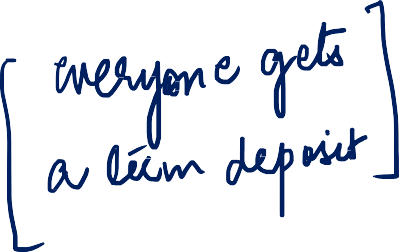 [everyone gets
a léim deposit]